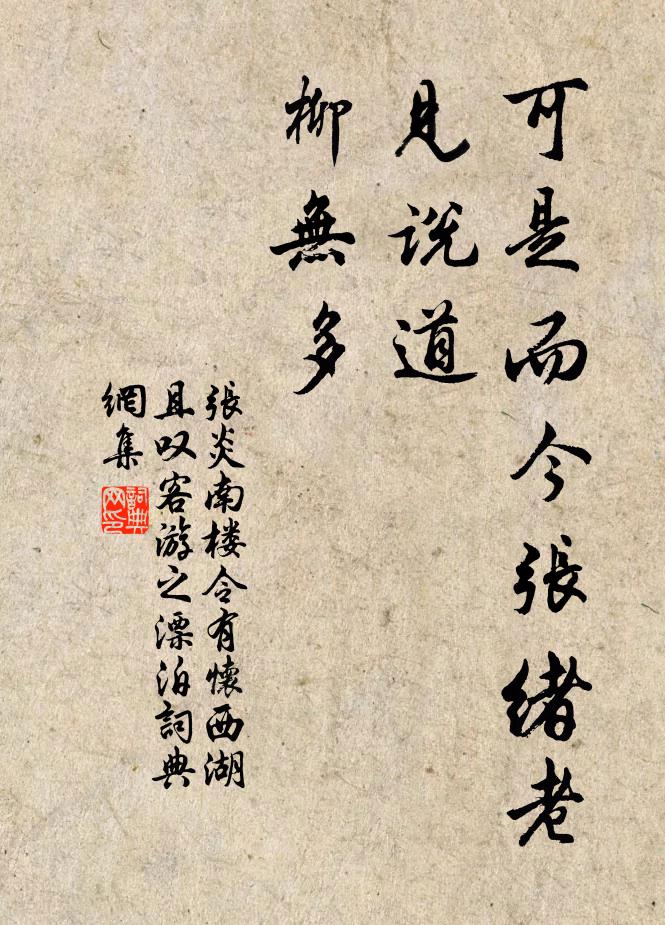 可是而今張緒老
見説道
柳無多
張炎南楼令有懷西湖
且叹客游之漂泊詞典
網集
詞典
网印